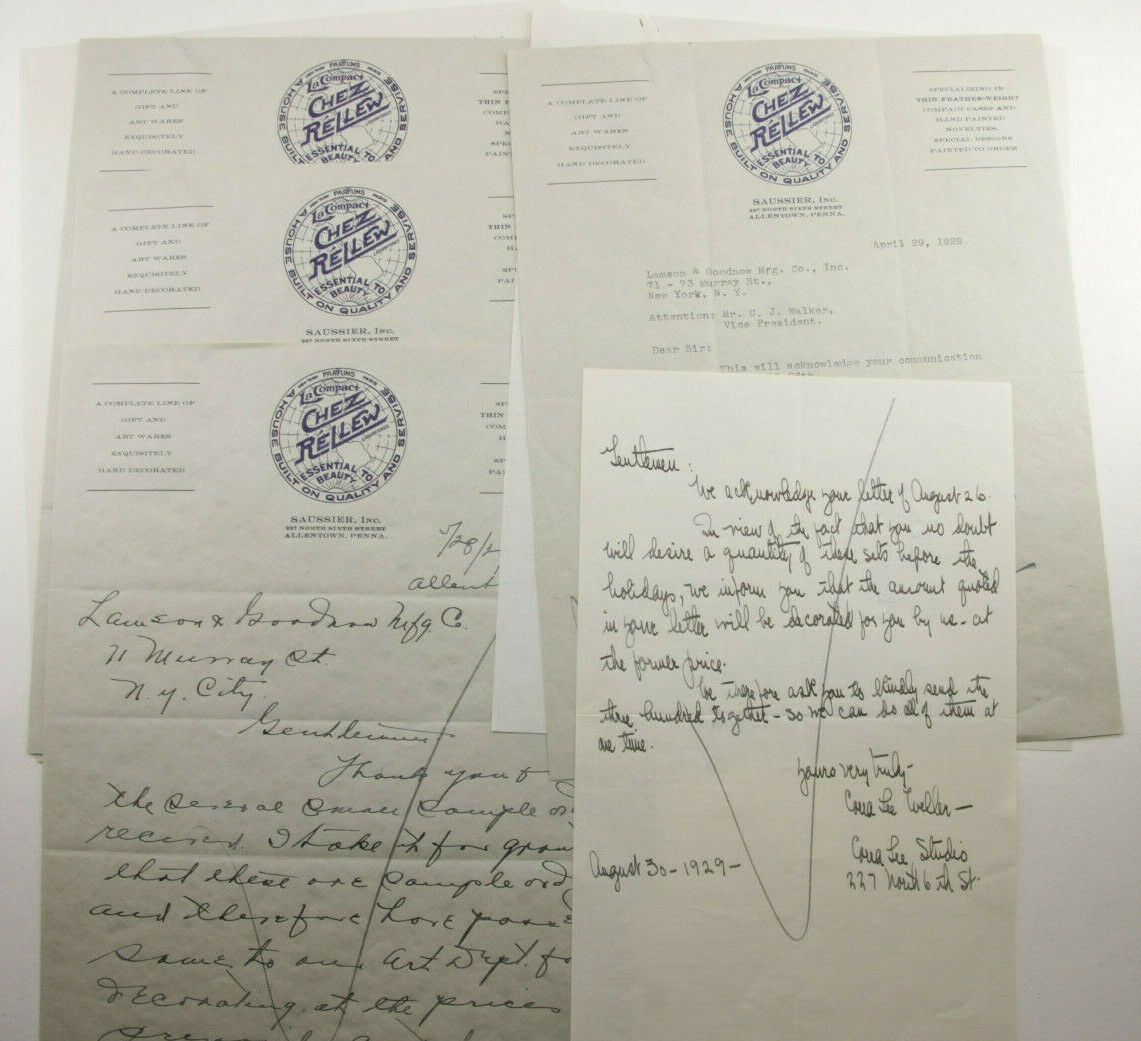 A COMPLETE LINE OF
GIFT AND
ART WARES
EXQUISITELY
HAND DECORATED
NEW YORK PARFUMS PARIS
LaCompact
CHEZ
RÉLLEW
ESSENTIAL TO
BEAUTY
A HOUSE BUILT ON QUALITY AND SERVISE
A COMPLETE LINE OF
GIFT AND
ART WARES
EXQUISITELY
HAND DECORATED
NEW YORK PARFUMS PARIS
LaCompact
CHEZ
RÉLLEW
LABORATORIES
ESSENTIAL TO
BEAUTY
A HOUSE BUILT ON QUALITY AND SERVISE
SAUSSIER, INC.
227 NORTH SIXTH STREET
A COMPLETE LINE OF
GIFT AND
ART WARES
EXQUISITELY
HAND DECORATED
NEW YORK PARFUMS PARIS
LaCompact
CHEZ
RÉLLEW
LABORATORIES
ESSENTIAL TO
BEAUTY
A HOUSE BUILT ON QUALITY AND SERVISE
SAUSSIER, INC.
227 NORTH SIXTH STREET
ALLENTOWN, PENNA.
Allent
Lamson & Goodnow Mfg Co.
71 Murray St.
N.Y. City.
Gentlemen
Thank you f
the several small sample or
received. I take it for gran
that these are sample ord
and therefore have passe
same to our Art Dept. fo
decorating at the prices
A COMPLETE LINE OF
GIFT AND
ART WARES
EXQUISITELY
HAND DECORATED
NEW YORK PARFUMS PARIS
LaCompact
CHEZ
RÉLLEW
LABORATORIES
ESSENTIAL TO
BEAUTY
A HOUSE BUILT ON QUALITY AND SERVISE
SAUSSIER, INC.
227 NORTH SIXTH STREET
ALLENTOWN, PENNA.
SPECIALIZING IN
THIN FEATHER-WEIGHT
COMPACT CASES AND
HAND PAINTED
NOVELTIES.
SPECIAL DESIGNS
PAINTED TO ORDER
April 29, 1929
Lamson & Goodnow Mfg. Co., Inc.
71 - 73 Murray St.,
New York, N. Y.
Attention: Mr. C. J. Walker,
Vice President.
Dear Sir:
This will acknowledge your communication
Gentlemen:
We acknowledge your letter of August 26.
In view of the fact that you no doubt
will desire a quantity of these sets before the
holidays, we inform you that the amount quoted
in your letter will be decorated for you by us - at
the former price.
We therefore ask you to kindly send the
three hundred together - so we can do all of them at
one time.
Yours very truly -
Cora Lee Weller -
Cora Lee Studio
227 North 6th St.
August 30 - 1929 -